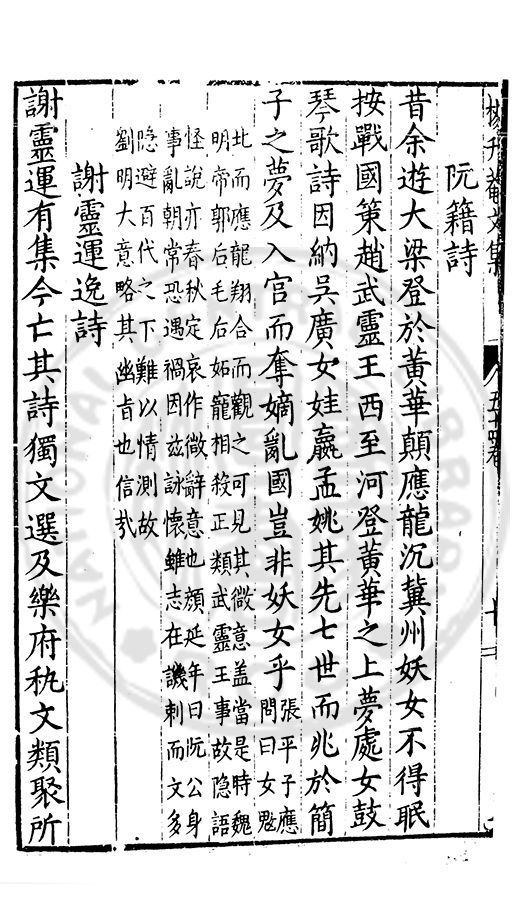 楊升菴文集
五十四卷
阮籍詩
昔余遊大梁登於黃華顛應龍沉冀州妖女不得眠
按戰國策趙武靈王西至河登黃華之上夢處女鼓
琴歌詩因納吳廣女娃嬴孟姚其先七世而兆於簡
子之夢及入宮而奪嫡亂國豈非妖女乎
張平子應
問曰女魃
北而應龍翔合而觀之可見其微意盖當是時魏
明帝郭后毛后妬寵相殺正類武靈王事故隐語
怪說亦春秋定哀作微辭意也顔延年曰阮公身
事亂朝常恐遇禍因兹詠懷雖志在譏刺而文多
隐避百代之下難以情測故
劉明大意略其幽旨也信㢤
謝靈運逸詩
謝靈運有集今亡其詩獨文選及樂府秇文類聚所
NATIONAL CENTRAL LIBRARY